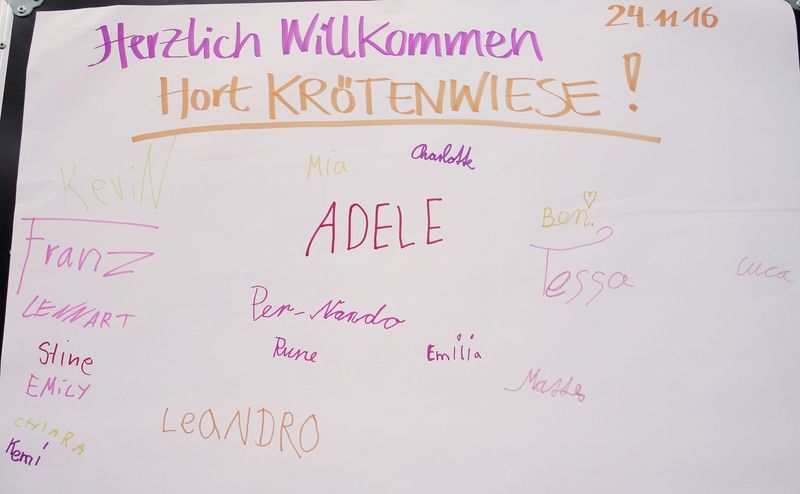 24.11.16
Herzlich Willkommen
Hort KRÖTENWIESE!
Kevin
Mia
Charlotte
ADELE
Ben
Franz
Tessa
Luca
LENNART
Per-Nando
Stine
Rune
Emilia
EMiLY
Mattes
CHIARA
LeANDRO
Kemi